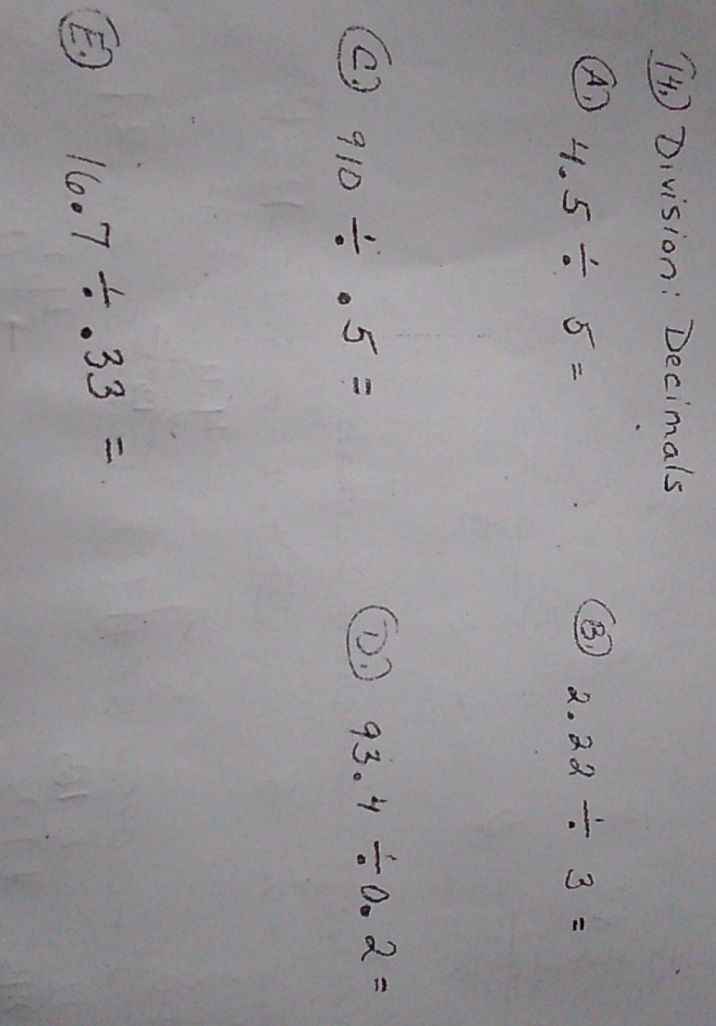 14.) Division: Decimals
A.) 4.5 ÷ 5 =
B.) 2.22 ÷ 3 =
C.) 910 ÷ .5 =
D.) 93.4 ÷ 0.2 =
E.) 16.7 ÷ .33 =